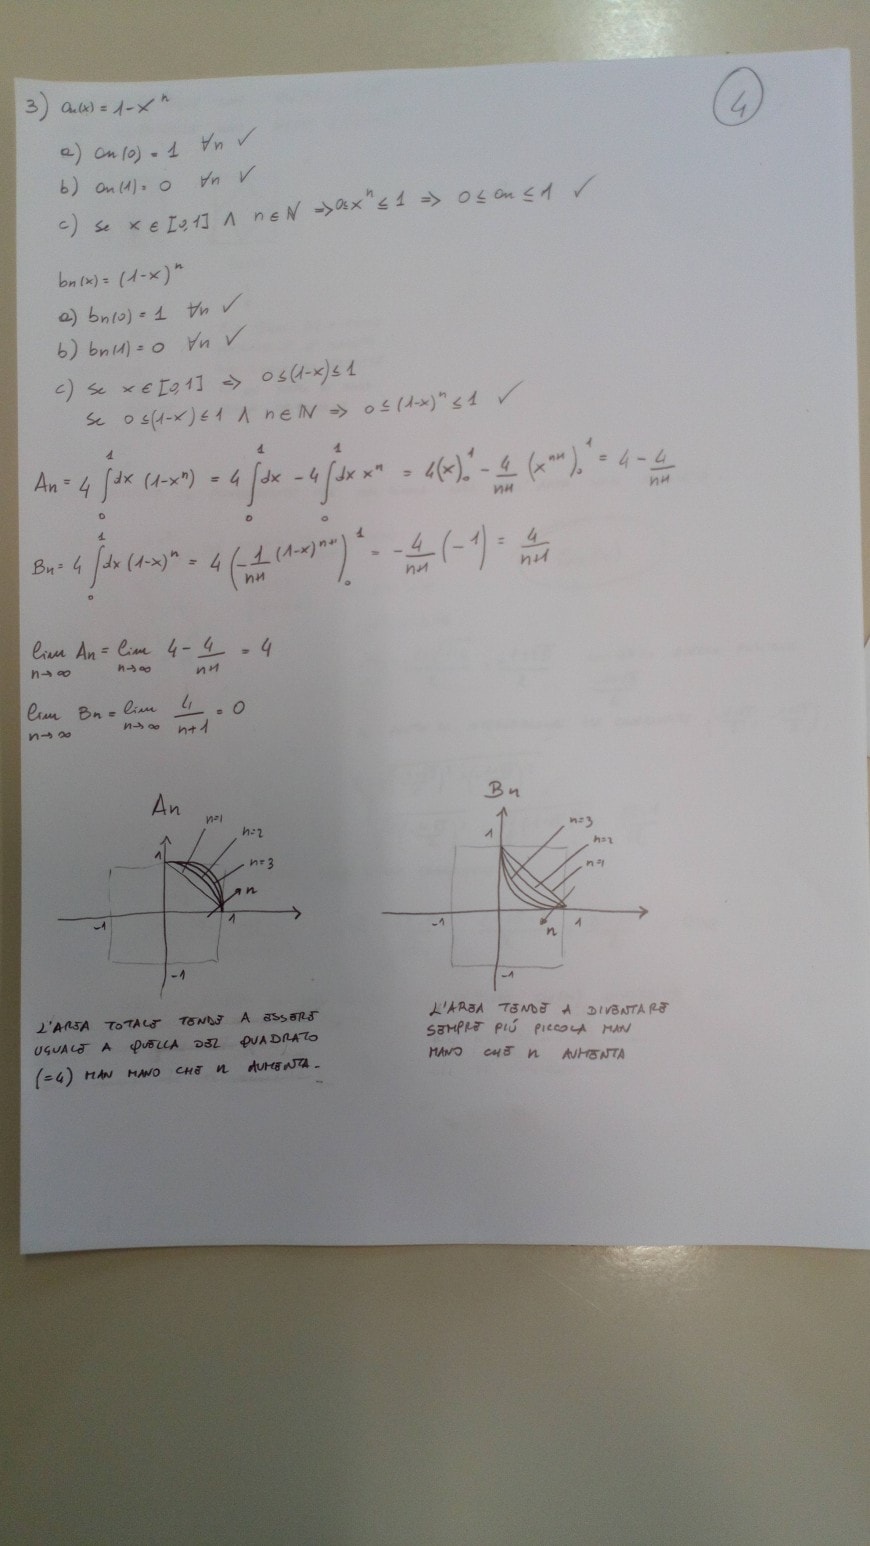 4
3) an(x) = 1-x^n
a) an(0) = 1 ∀n ✓
b) an(1) = 0 ∀n ✓
c) se x ∈ [0,1] ∧ n ∈ N ⇒ 0≤x^n ≤ 1 ⇒ 0 ≤ an ≤ 1 ✓
bn(x) = (1-x)^n
a) bn(0) = 1 ∀n ✓
b) bn(1) = 0 ∀n ✓
c) se x ∈ [0,1] ⇒ 0≤(1-x)≤1
se 0≤(1-x)≤1 ∧ n ∈ N ⇒ 0≤(1-x)^n ≤ 1 ✓
An = 4 ∫_0^1 dx (1-x^n) = 4 ∫_0^1 dx - 4 ∫_0^1 dx x^n = 4(x)_0^1 - 4/(n+1) (x^(n+1))_0^1 = 4 - 4/(n+1)
Bn = 4 ∫_0^1 dx (1-x)^n = 4 (-1/(n+1) (1-x)^(n+1))_0^1 = -4/(n+1) (-1) = 4/(n+1)
lim n→∞ An = lim n→∞ 4 - 4/(n+1) = 4
lim n→∞ Bn = lim n→∞ 4/(n+1) = 0
An
n=1
n=2
n=3
n
1
-1
1
-1
L'AREA TOTALE TENDE A ESSERE
UGUALE A QUELLA DEL QUADRATO
(=4) MAN MANO CHE n AUMENTA.
Bn
n=3
n=2
n=1
1
-1
1
n
-1
L'AREA TENDE A DIVENTARE
SEMPRE PIÚ PICCOLA MAN
MANO CHE n AUMENTA